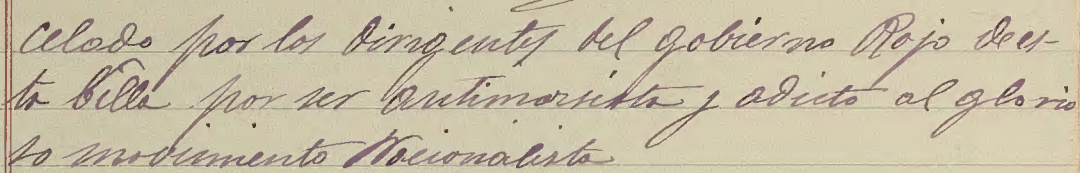 celado por los dirigentes del gobierno Rojo de es-
ta billa por ser antimarsista y adicto al glorio
so movimiento Nacionalista